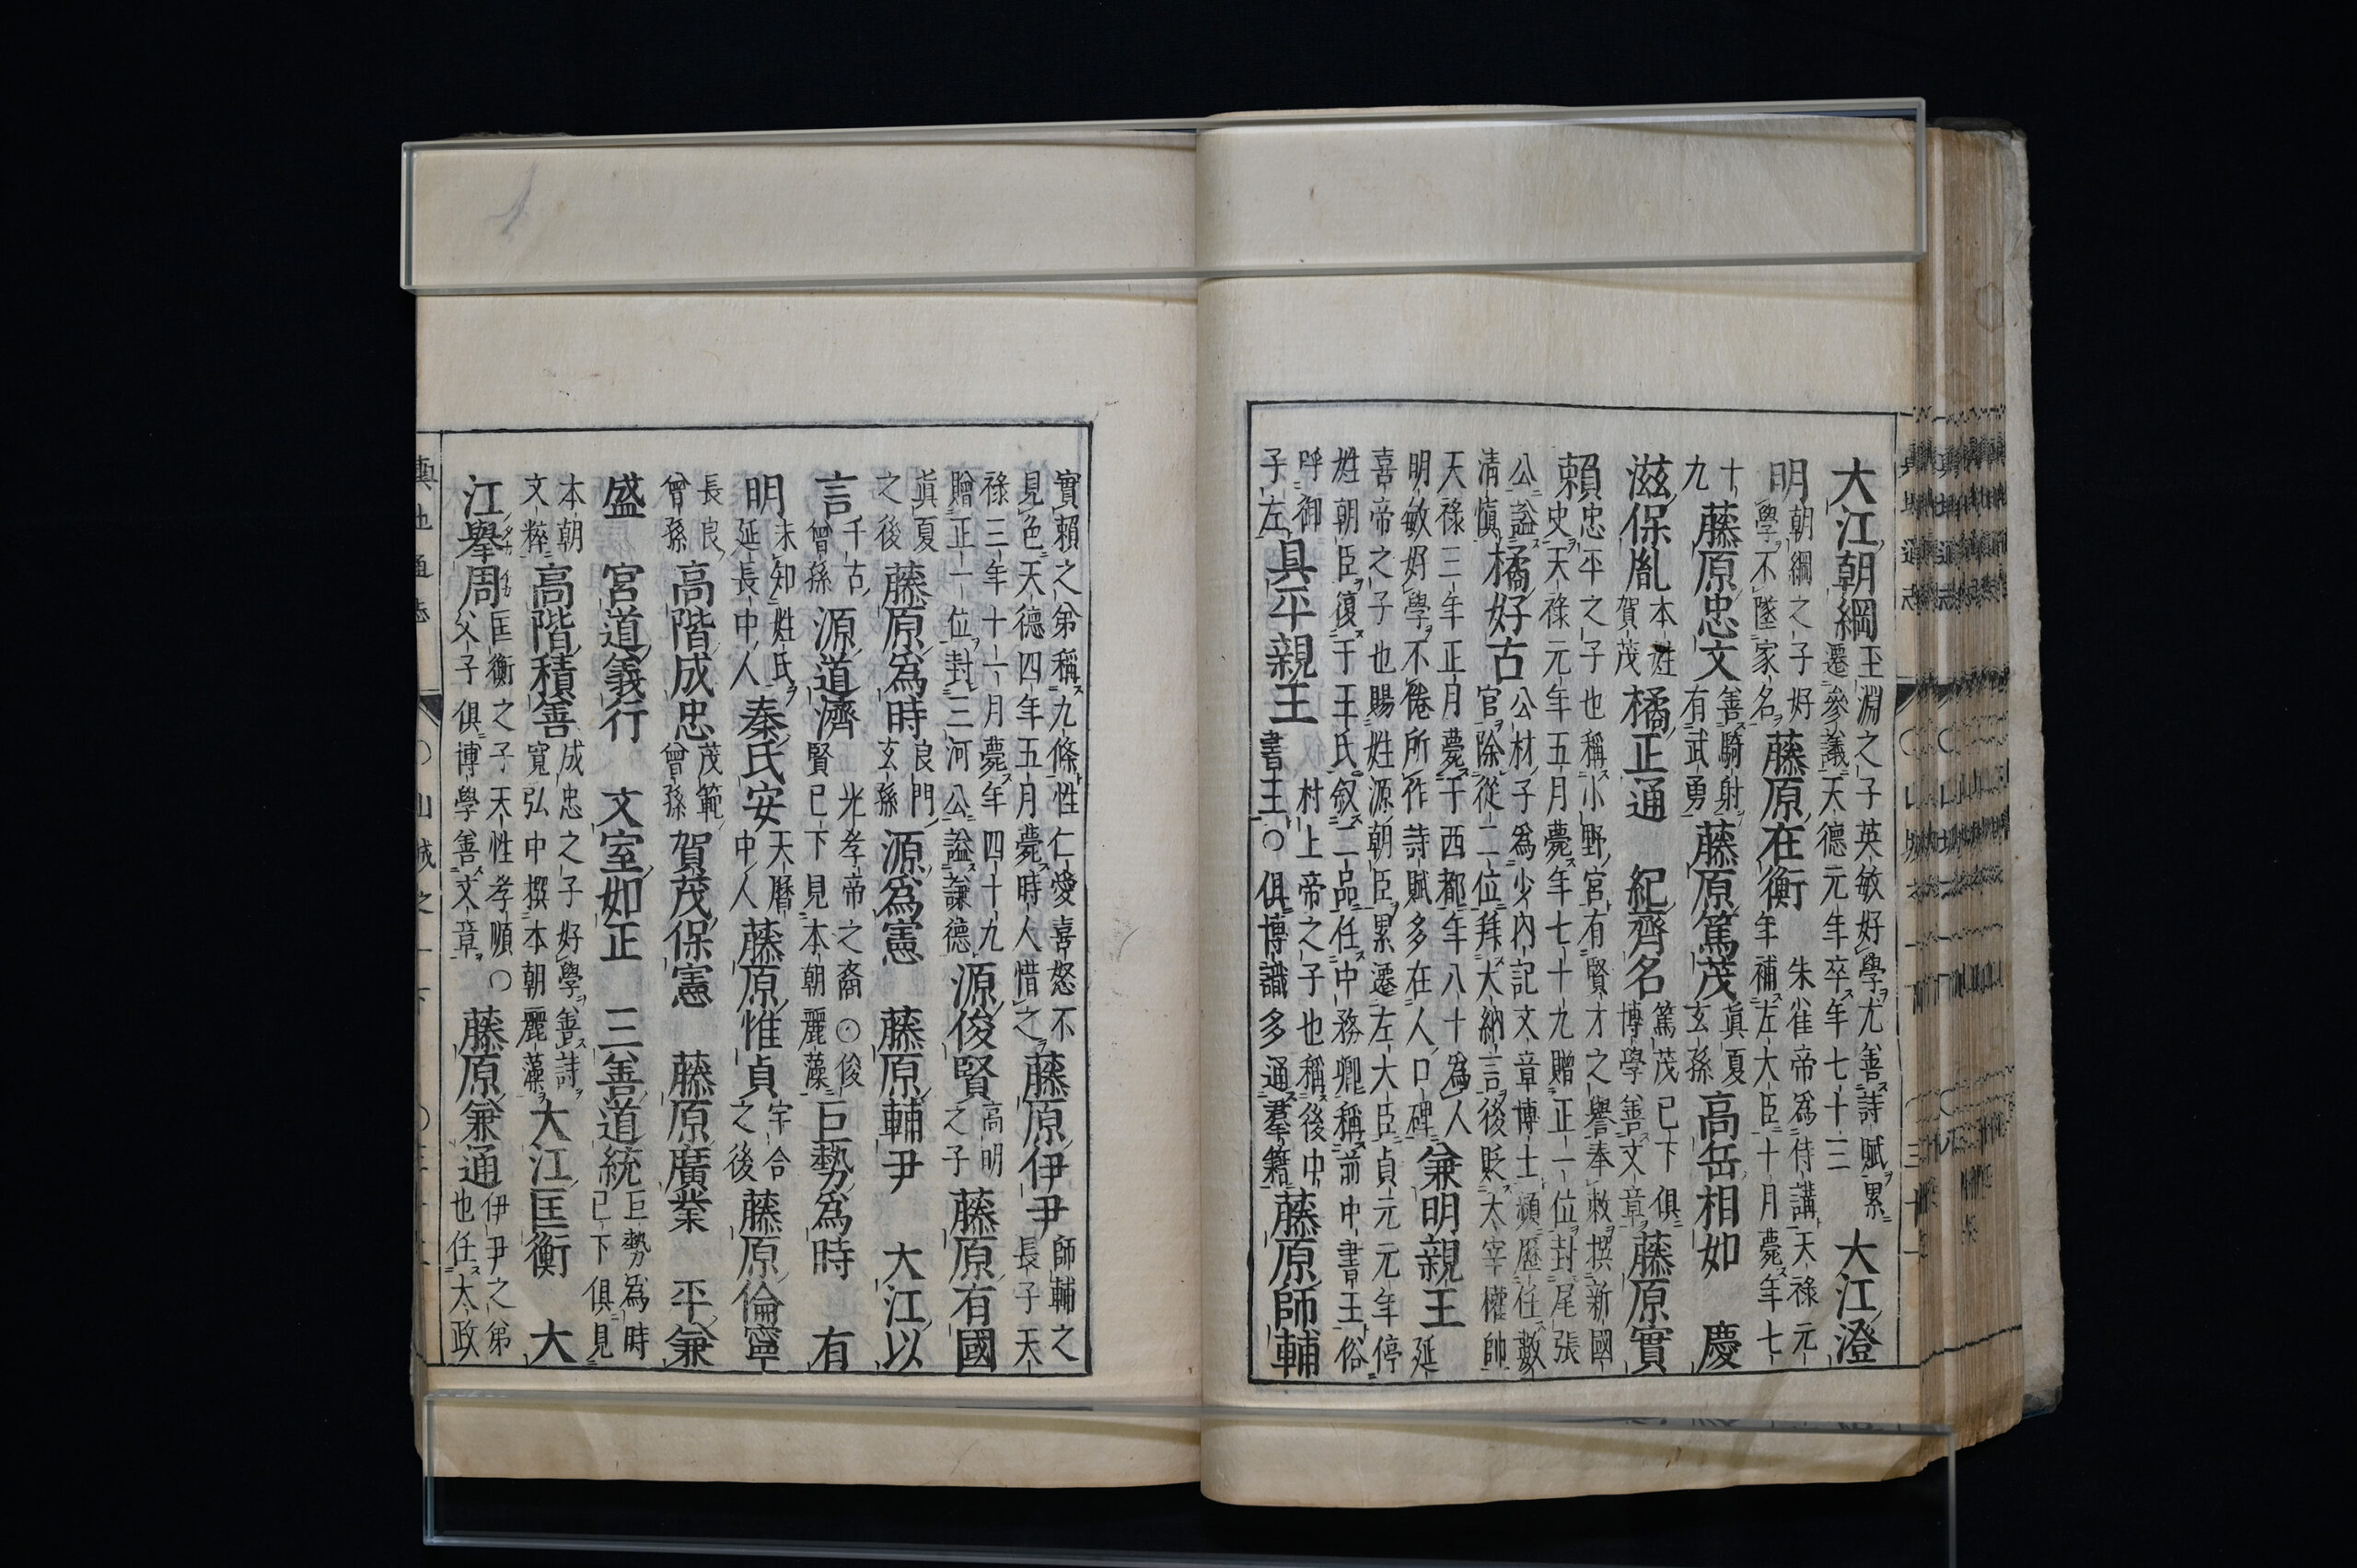 大江朝綱玉淵之子英敏好學尤善詩賦累遷參議天德元年卒年七十二大江澄
明朝綱之子好學不墜家名藤原在衡朱雀帝爲侍講天祿元年補左大臣十月薨年七
十九藤原忠文善騎射有武勇藤原篤茂眞夏玄孫高岳相如 慶
滋保胤本姓賀茂橘正通 紀齊名篤茂已下俱博學善文章藤原實
賴忠平之子也稱小野宮有賢才之譽奉敕撰新國史天祿元年五月薨年七十九贈正一位封尾張
公謚清愼橘好古公材子爲少內記文章博士頻歷任數官除從二位拜大納言後貶大宰權帥
天祿三年正月薨于西都年八十爲人明敏好學不倦所作詩賦多在人口碑兼明親王延
喜帝之子也賜姓源朝臣累遷左大臣貞元元年停姓朝臣復于王氏叙二品任中務卿稱前中書王俗
呼御子左具平親王村上帝之子也稱後中書王○俱博識多通羣籍藤原師輔
實賴之弟稱九條性仁愛喜怒不見色天德四年五月薨時人惜之藤原伊尹師輔之長子天
祿三年十一月薨年四十九贈正一位封三河公謚謙德源俊賢高明之子藤原有國
眞夏之後藤原爲時良門玄孫源爲憲 藤原輔尹 大江以
言千古曾孫源道濟光孝帝之裔○俊賢已下見本朝麗藻巨勢爲時 有
明未知姓氏延長中人秦氏安天曆中人藤原惟貞宇合之後藤原倫寧
長良曾孫高階成忠茂範曾孫賀茂保憲 藤原廣業 平兼
盛 宮道義行 文室如正 三善道統巨勢爲時已下俱見
本朝文粹高階積善成忠之子好學善詩寬弘中撰本朝麗藻大江匡衡 大
江擧周匡衡之子天性孝順○父子俱博學善文章藤原兼通伊尹之弟也任太政